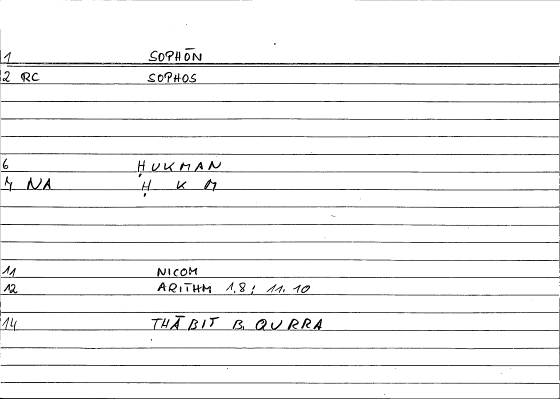 1 SOPHŌN
2 RC SOPHOS
6 ḤUKMAN
4 NA Ḥ K M
11 NICOM
12 ARITHM 1.8; 11.10
14 THĀBIT B. QURRA